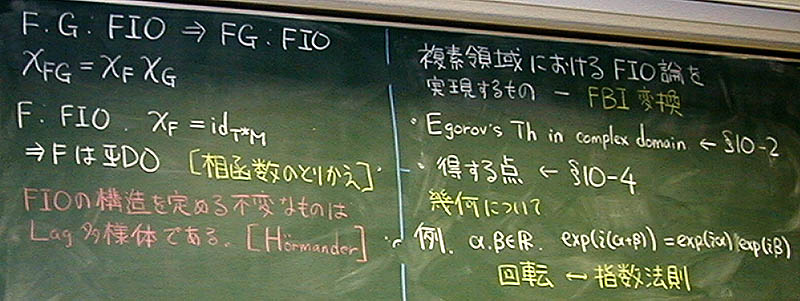 F. G : FIO ⇒ FG : FIO
χ_FG = χ_F χ_G
F : FIO . χ_F = id_T*M
⇒ F は ΨDO [相函数のとりかえ]
FIOの構造を定める不変なものは
Lag 多様体である. [Hörmander]
複素領域における FIO論を
実現するもの — FBI 変換
・ Egorov's Th in complex domain ← §10-2
・ 得する点 ← §10-4
幾何について
例. α.β∈ℝ. exp(i(α+β)) = exp(iα) exp(iβ)
回転 ↔ 指数法則